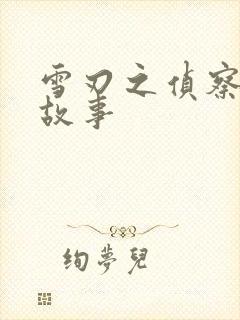 雪刃之偵察
故事
絢夢兒